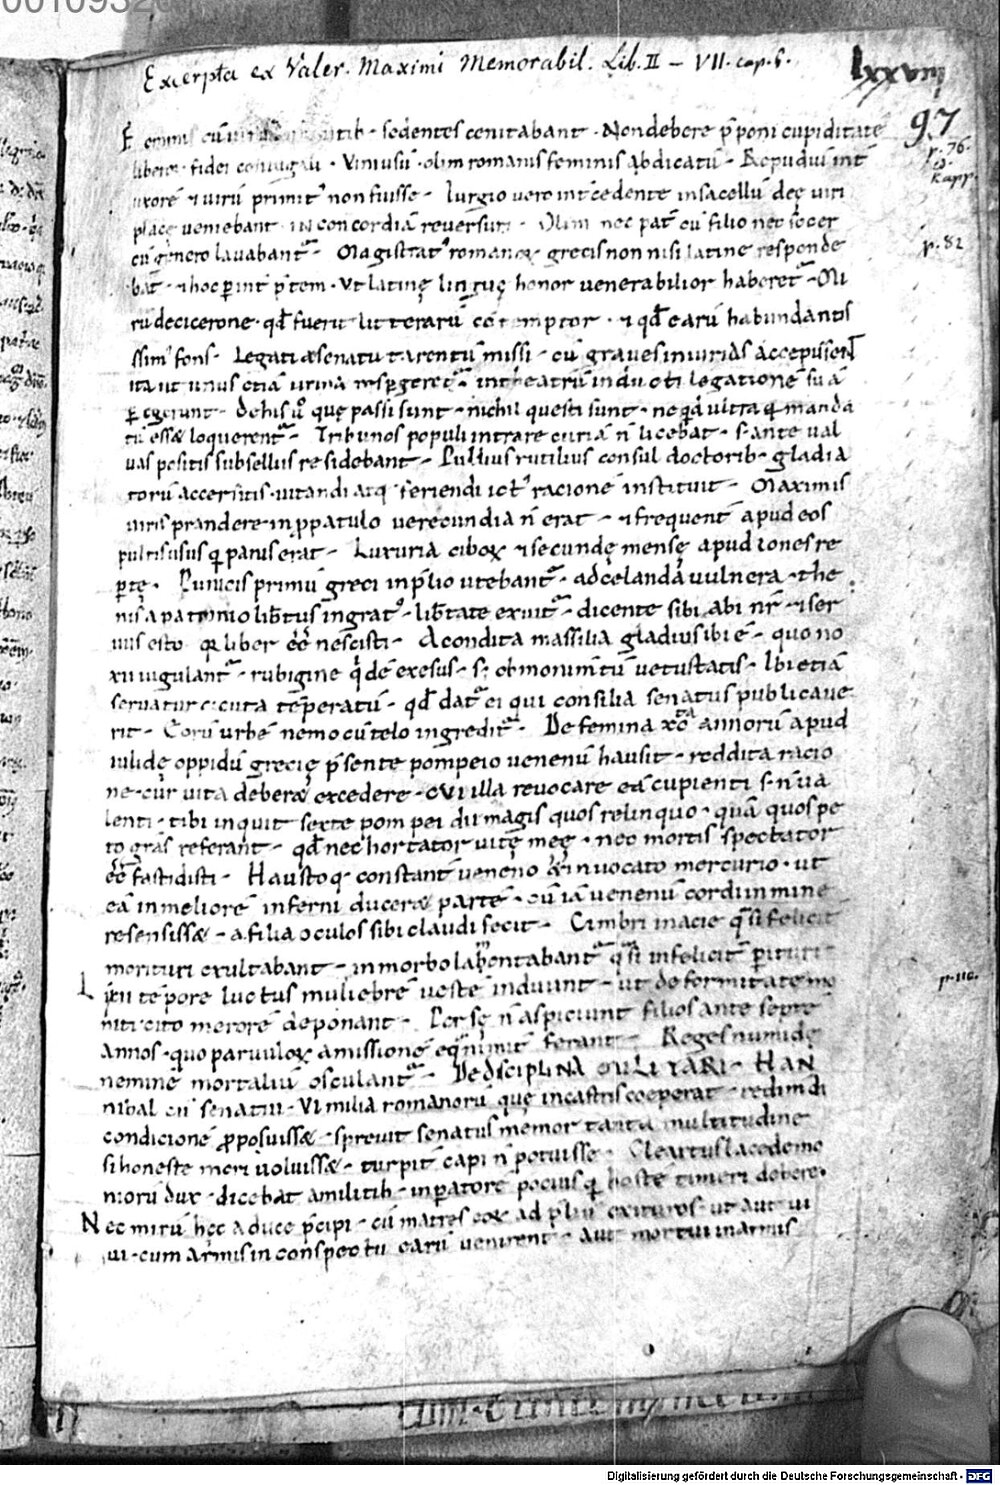 Excerpta ex Valer. Maximi Memorabil. Lib. II – VII. cap. 6.
lxxvııı
97
p. 76.
Kapp.
p. 82
Femin̄ cū uiris sedentes cenitabant · Non debere p̄poni cupiditatē
libero · fidei coniugali · Vini usū · olim romanis feminis abdicatū · Repudiū int̄
uxorē ⁊ uirū primit̄ non fuisse · Iurgio uero int̄cedente in sacellū deę uiri
placę ueniebant · in concordiā reuersuri · Olim nec pat̄ cū filio nec socer
cū genero lauabant̄ · Magistrat᷒ romanoꝝ grecis non nisi latine responde
bat̄ · ⁊ hoc ꝑ int̄p̄tem · Vt latinę linguę honor uenerabilior haberet̄ · Mi
rū de cicerone · qđ fuerit litterarū cōtemptor · ⁊ qđ earū habundantis
sim᷒ fons · Legati a senatu tarentū missi · cū graues iniurias accepissent̄
ita ut unus etiā urina respergeret̄ · in theatrū inducti legationē suā
ꝑegerunt · De his ů quę passi sunt · nichil questi sunt · ne qđ ultra qā manda
tū esset loquerent̄ · Tribunos populi intrare curiā n̄ licebat · s; ante ual
uas positis subselliis residebant · Publius rutilius consul doctorib; gladia
torū accersitis · uitandi atq; feriendi ict᷒ racionē instituit · Maximis
uiris prandere in ꝓpatulo uerecundia n̄ erat · ⁊ frequent̄ apud eos
pultis usus qā panis erat · Luxuria ciboꝝ ⁊ secundę mensę apud iones re
ptę · Punicis primū greci in p̄lio utebant̄ · ad celandā uulnera · Athe
nis a patrono lib̄tus ingrat᷒ · lib̄tate exuit̄ · dicente sibi · abi nr̄ · ⁊ ser
uus esto · qā liber eē nescisti · A condita massilia gladius ibi ē · quo no
xii iugulant̄ · rubigine q̇dē exesus · s; ob monim̄tū uetustatis · Ibi etiā
seruatur cicuta tēperatū · qđ dat̄ ei qui consilia senatus publicaue
rit · Eorū urbē nemo cū telo ingredit̄ · De femina xc annorū apud
iulidę oppidū grecię p̄sente pompeio uenenū hausit · reddita racio
ne · cur uita deberet excedere · cui illa reuocare eā cupienti s; n̄ ua
lenti · tibi inquit sexte pompei dii magis quos relinquo · quā quos pe
to grās referant · qđ nec hortator uitę meę · nec mortis spectator
eē fastidisti · Haustoq; constant̄ ueneno & inuocato mercurio · ut
eā in meliorē inferni duceret partē · cū iā uenenū cordi inmine
re sensisset · a filia oculos sibi claudi fecit · Cimbri in acie qͣsi felicit̄
morituri exultabant · in morbo lamentabant̄ qͣsi infelicit̄ perituri
Licii tēpore luctus muliebrē uestē induunt · ut deformitate mo
niti cito merorē deponant · Persę n̄ aspiciunt filios ante septē
annos · quo paruuloꝝ amissionē eqͣnimit̄ ferant · Reges numidę
neminē mortaliū osculant̄ · De disciplina militari · Han
nibal cū senatui · VI milia romanorū quę in castris coeperat · redimdi
condicionē ꝓposuisset · spreuit senatus memor tanta multitudine
si honeste mori uoluisset · turpit̄ capi n̄ potuisse · Cleartus lacedemo
niorū dux · dicebat a militib; inꝑatorē pocius qā hostē timeri debere ·
Nec mirū hęc a duce p̄cipi · cū matres eoꝝ ad p̄liū exituros · ut aut ui
ui · cum armis in conspectū earū uenirent · aut mortui in armis
p. 110.
Digitalisierung gefördert durch die Deutsche Forschungsgemeinschaft - DFG